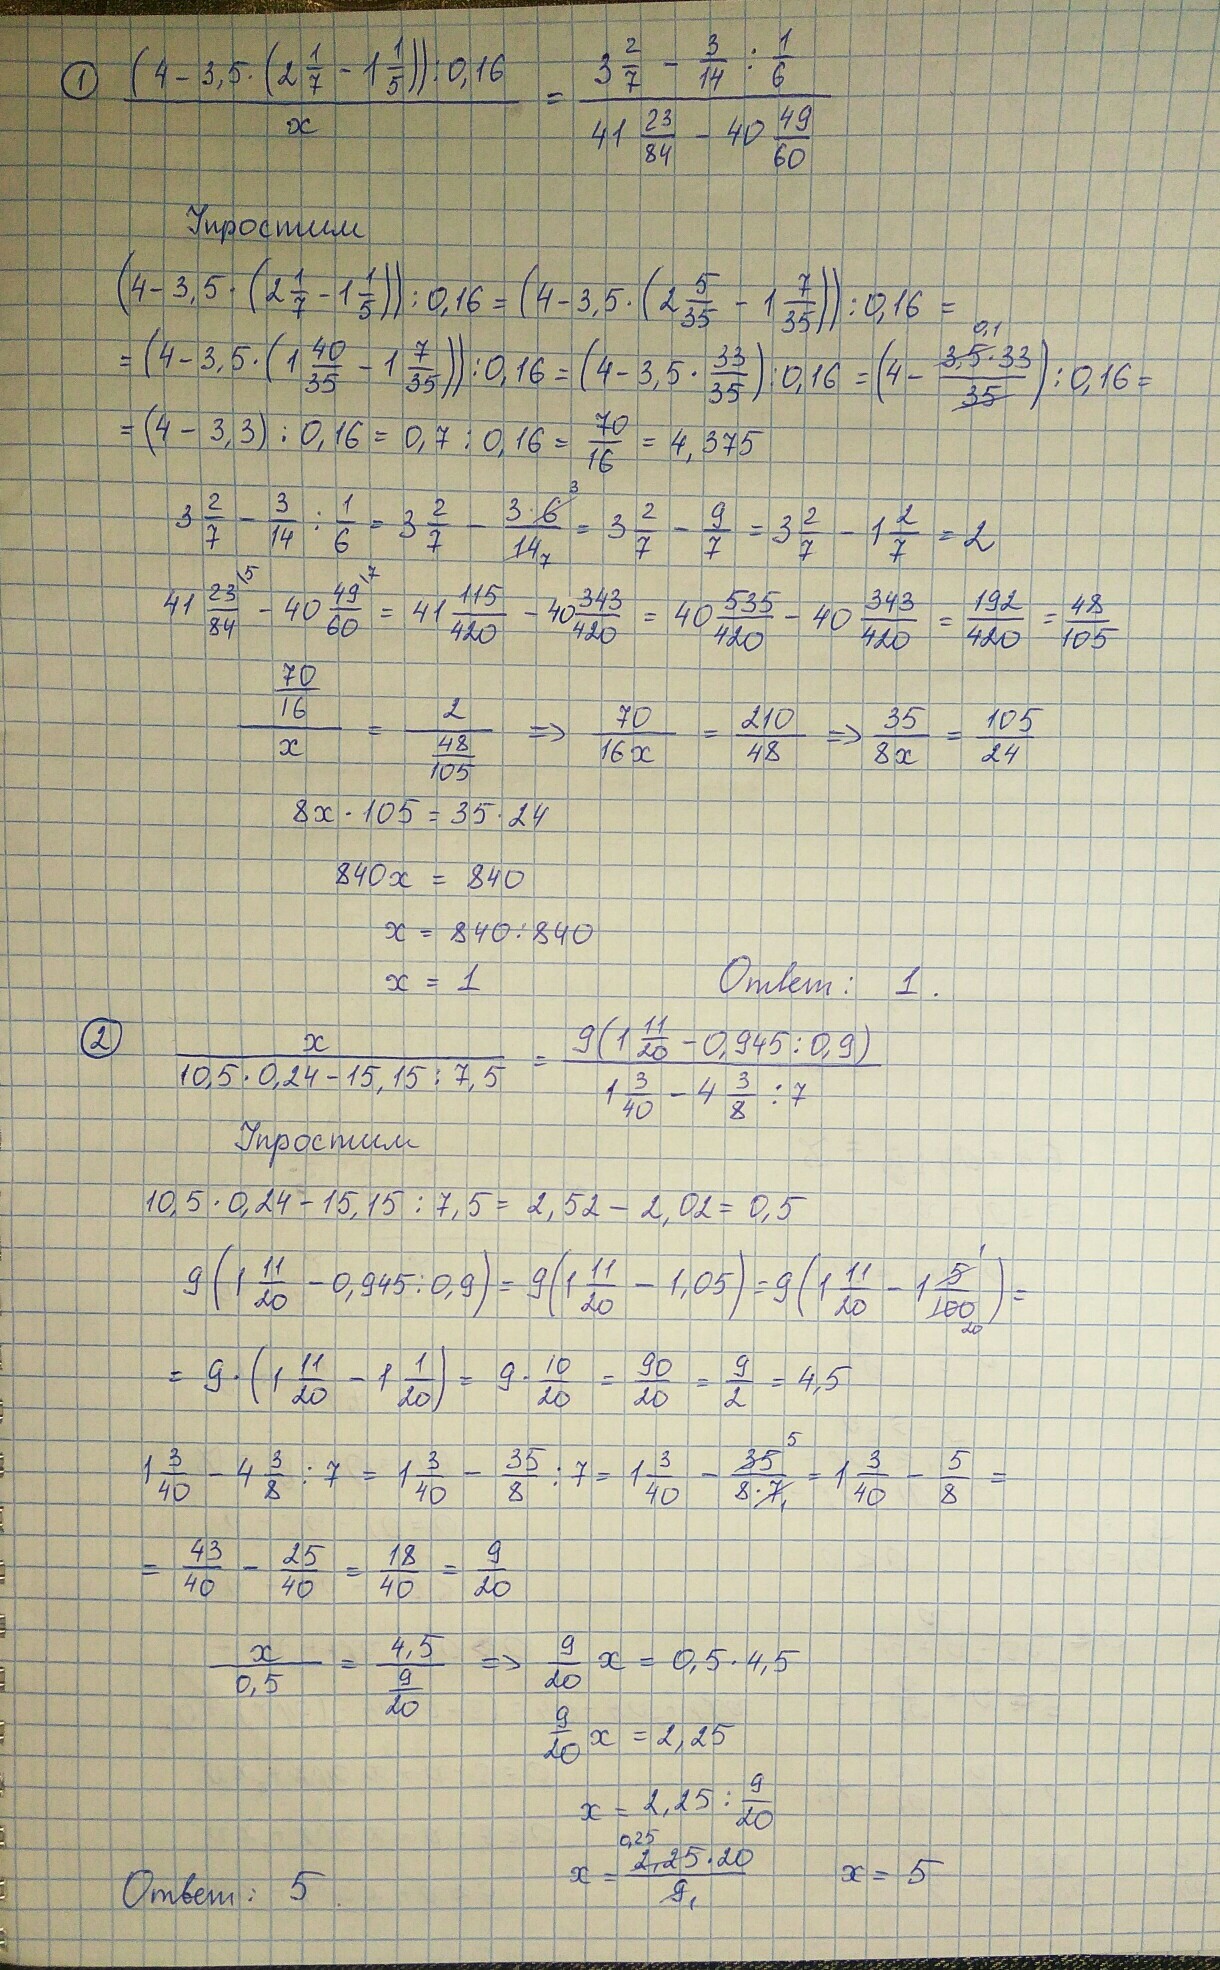 ① (4 - 3,5 · (2 1/7 - 1 1/5)) : 0,16 / x = (3 2/7 - 3/14 : 1/6) / (41 23/84 - 40 49/60)
Упростим
(4 - 3,5 · (2 1/7 - 1 1/5)) : 0,16 = (4 - 3,5 · (2 5/35 - 1 7/35)) : 0,16 =
= (4 - 3,5 · (1 40/35 - 1 7/35)) : 0,16 = (4 - 3,5 · 33/35) : 0,16 = (4 - 3,5 0,1 · 33 / 35) : 0,16 =
= (4 - 3,3) : 0,16 = 0,7 : 0,16 = 70/16 = 4,375
3 2/7 - 3/14 : 1/6 = 3 2/7 - 3 · 6 3 / 14 7 = 3 2/7 - 9/7 = 3 2/7 - 1 2/7 = 2
41 23/84 \5 - 40 49/60 \7 = 41 115/420 - 40 343/420 = 40 535/420 - 40 343/420 = 192/420 = 48/105
(70/16) / x = 2 / (48/105) => 70/16x = 210/48 => 35/8x = 105/24
8x · 105 = 35 · 24
840x = 840
x = 840 : 840
x = 1 Ответ: 1.
② x / (10,5 · 0,24 - 15,15 : 7,5) = 9(1 11/20 - 0,945 : 0,9) / (1 3/40 - 4 3/8 : 7)
Упростим
10,5 · 0,24 - 15,15 : 7,5 = 2,52 - 2,02 = 0,5
9(1 11/20 - 0,945 : 0,9) = 9(1 11/20 - 1,05) = 9(1 11/20 - 1 5 1 / 100 20) =
= 9 · (1 11/20 - 1 1/20) = 9 · 10/20 = 90/20 = 9/2 = 4,5
1 3/40 - 4 3/8 : 7 = 1 3/40 - 35/8 : 7 = 1 3/40 - 35 5 / 8 · 7 1 = 1 3/40 - 5/8 =
= 43/40 - 25/40 = 18/40 = 9/20
x / 0,5 = 4,5 / (9/20) => 9/20 x = 0,5 · 4,5
9/20 x = 2,25
x = 2,25 : 9/20
x = 2,25 0,25 · 20 / 9 1 x = 5
Ответ: 5.